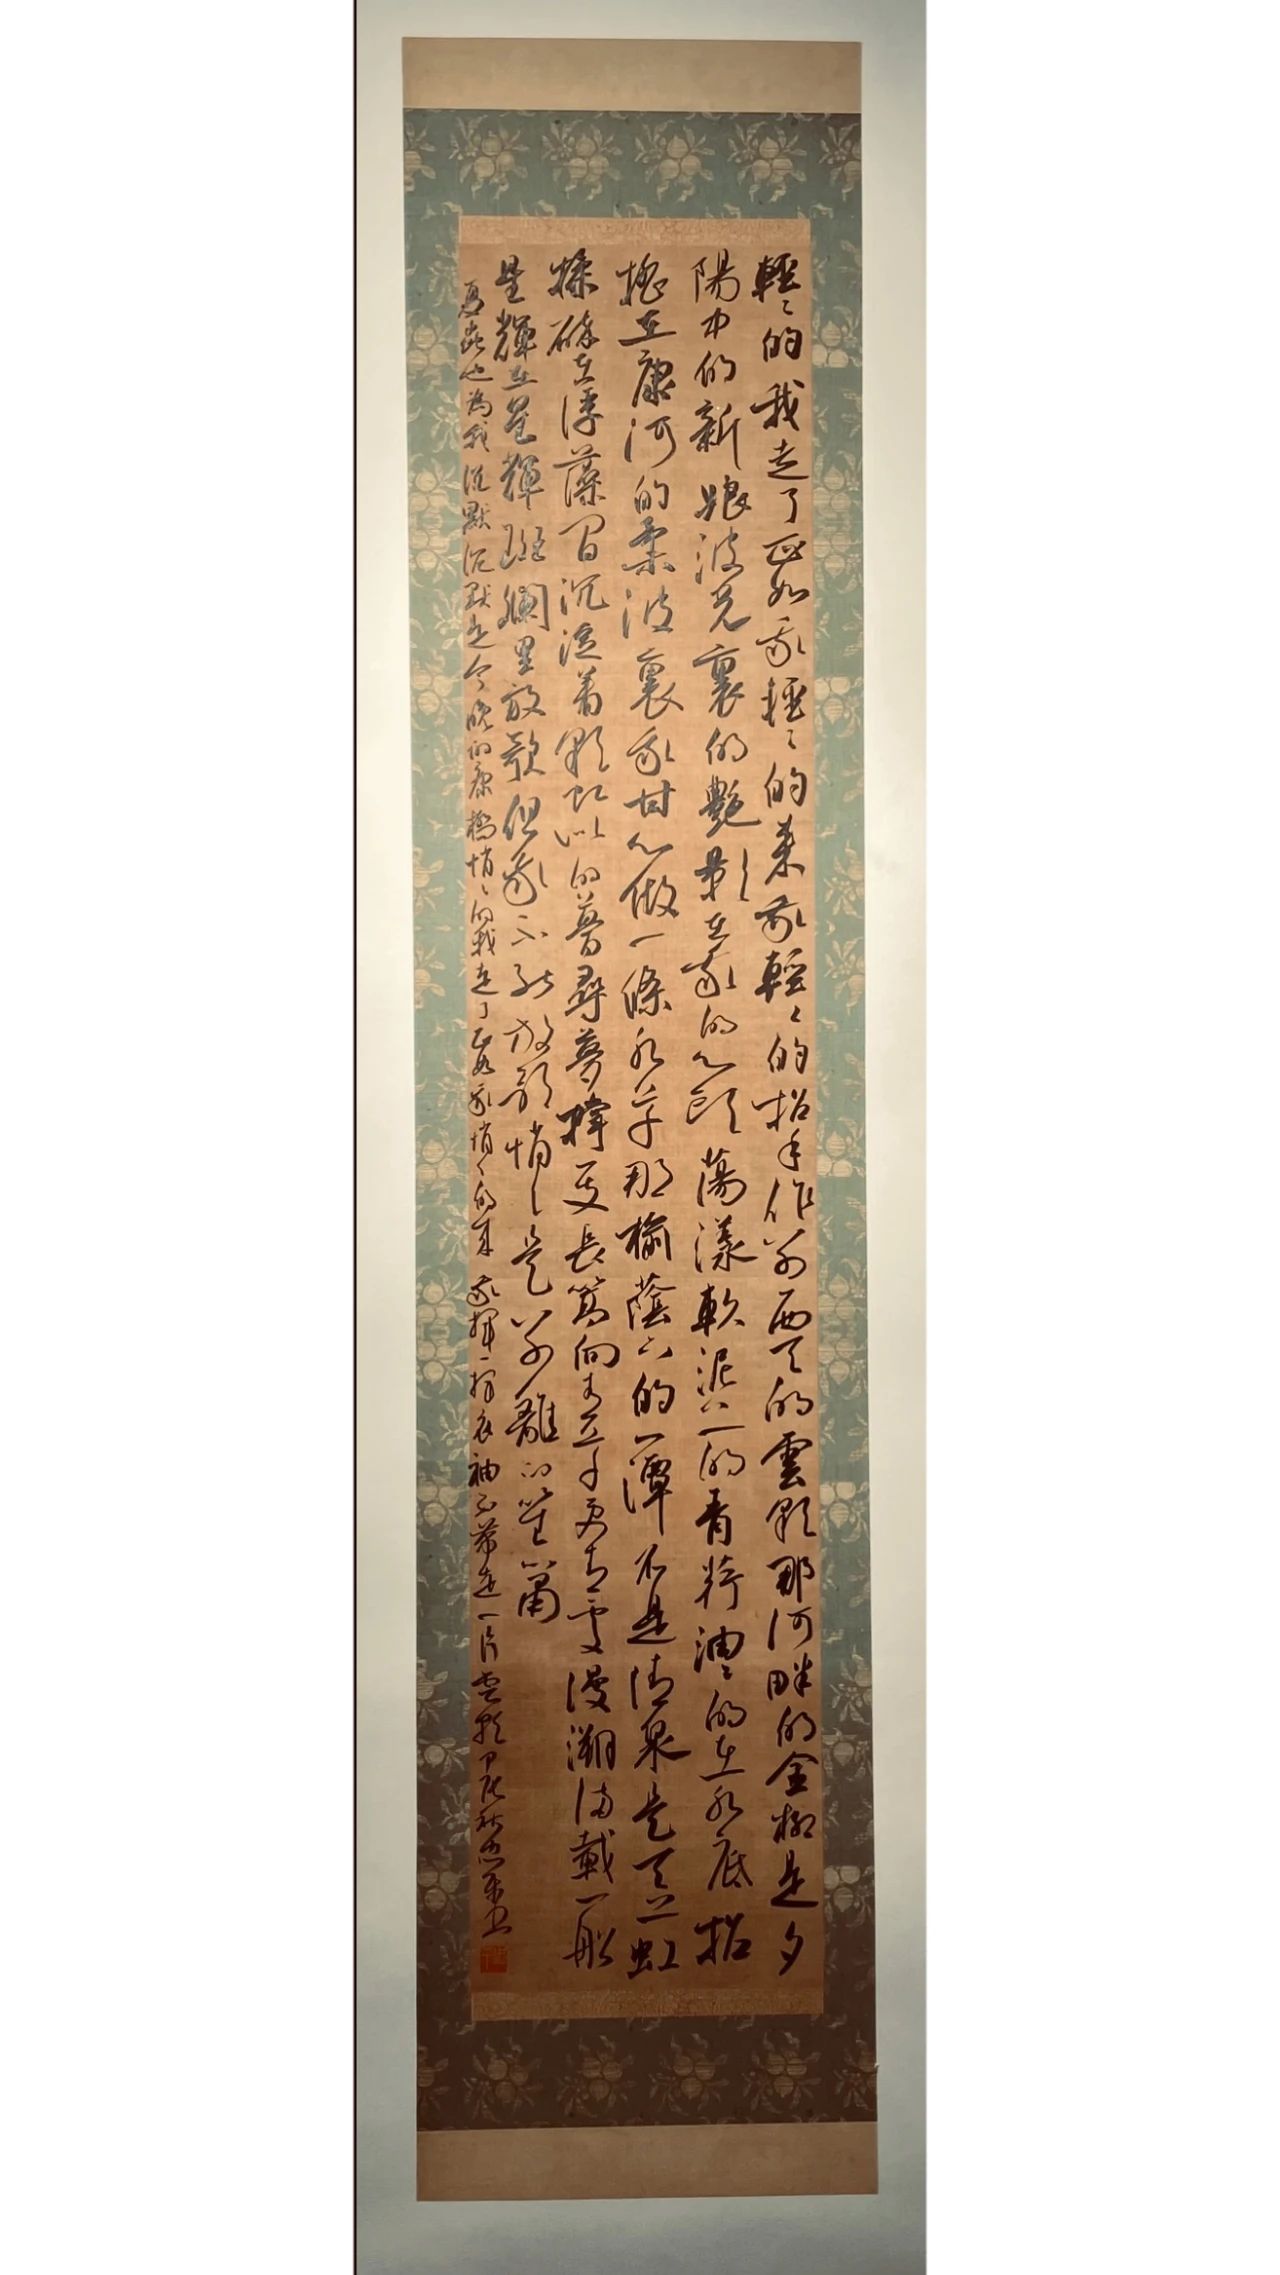 輕々的我走了正如我輕々的來我輕々的招手作別西天的雲彩那河畔的金柳是夕
陽中的新娘波光裏的艷影在我的心頭蕩漾軟泥上的青荇油々的在水底招
搖在康河的柔波裏我甘心做一條水草那榆蔭下的一潭不是清泉是天上虹
揉碎在浮藻間沉淀着彩虹似的夢尋夢撐一支長篙向青草更青處漫溯滿載一船
星輝在星輝斑斕里放歌但我不能放歌悄々是別離的笙簫
夏蟲也為我沉默沉默是今晚的康橋悄々的我走了正如我悄々的來我揮一揮衣袖不帶走一片雲彩